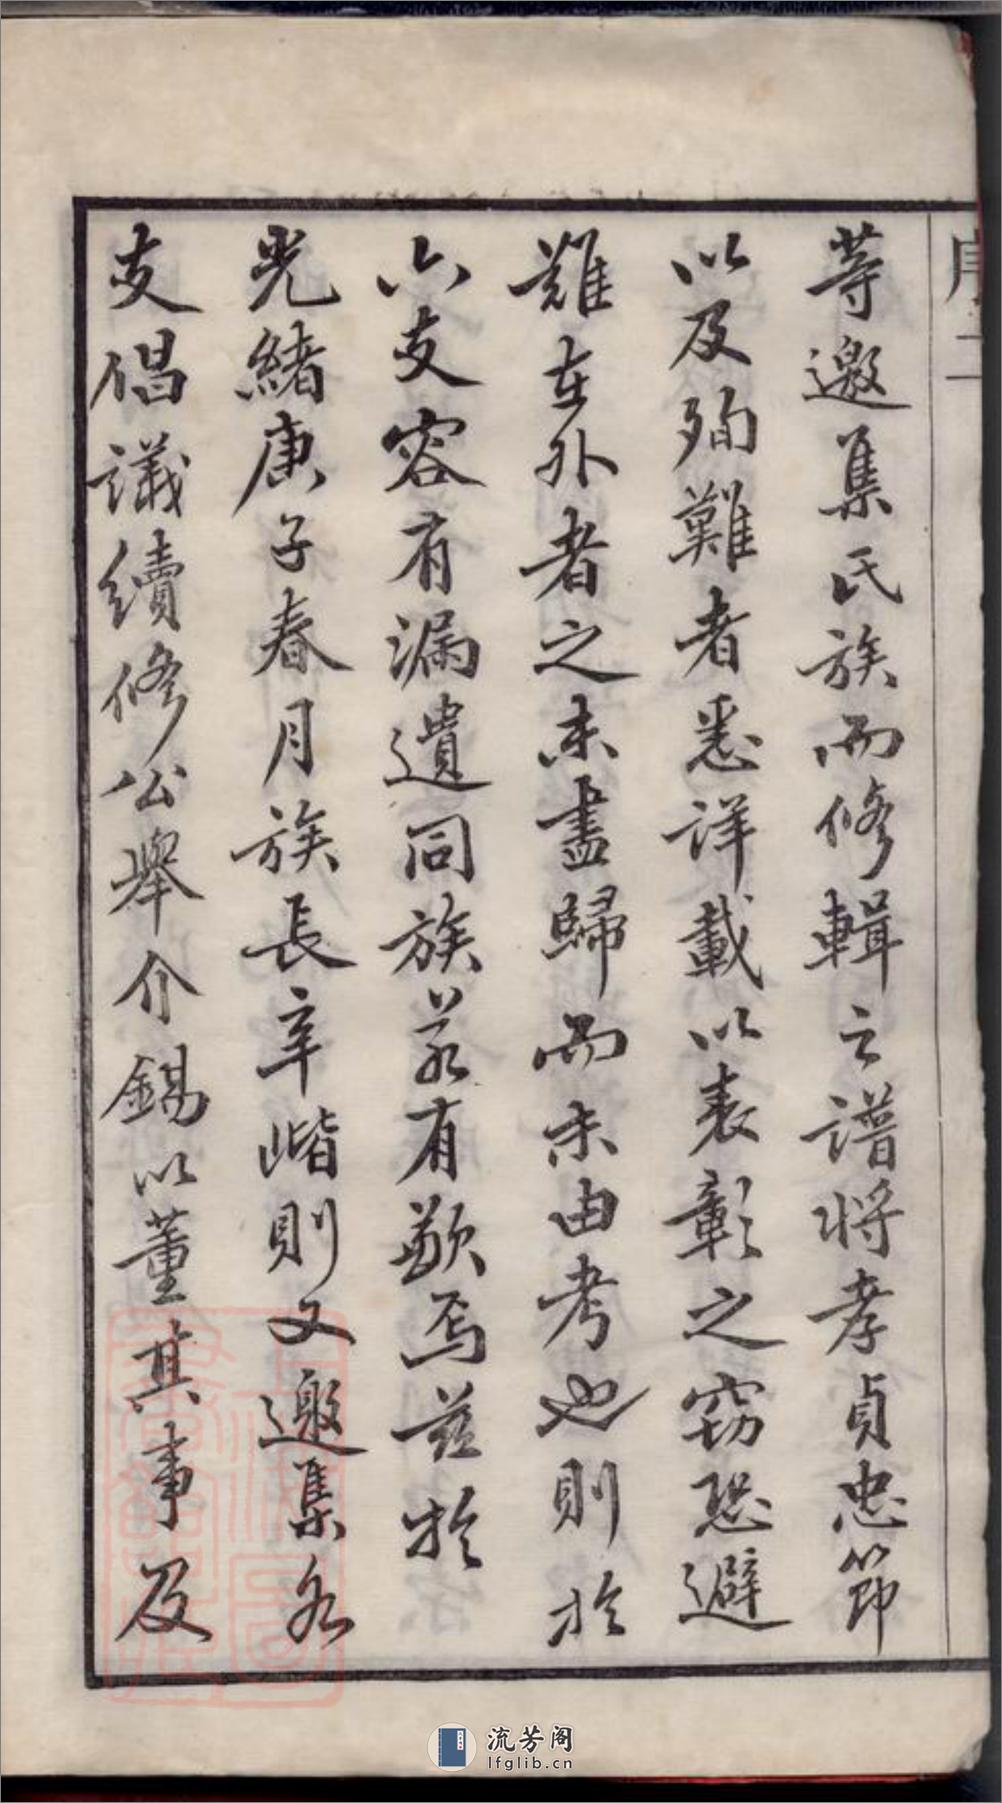 序二
等邀集氏族而修輯之譜將孝貞忠節
以及殉難者悉詳載以表彰之窃恐避
難在外者之未盡歸而未由考也則於
六支容有漏遺同族若有歉焉茲於
光緒庚子春月族長辛楷則又邀集各
支倡議續修公舉介錫以董其事及
流芳阁
lfglib.cn